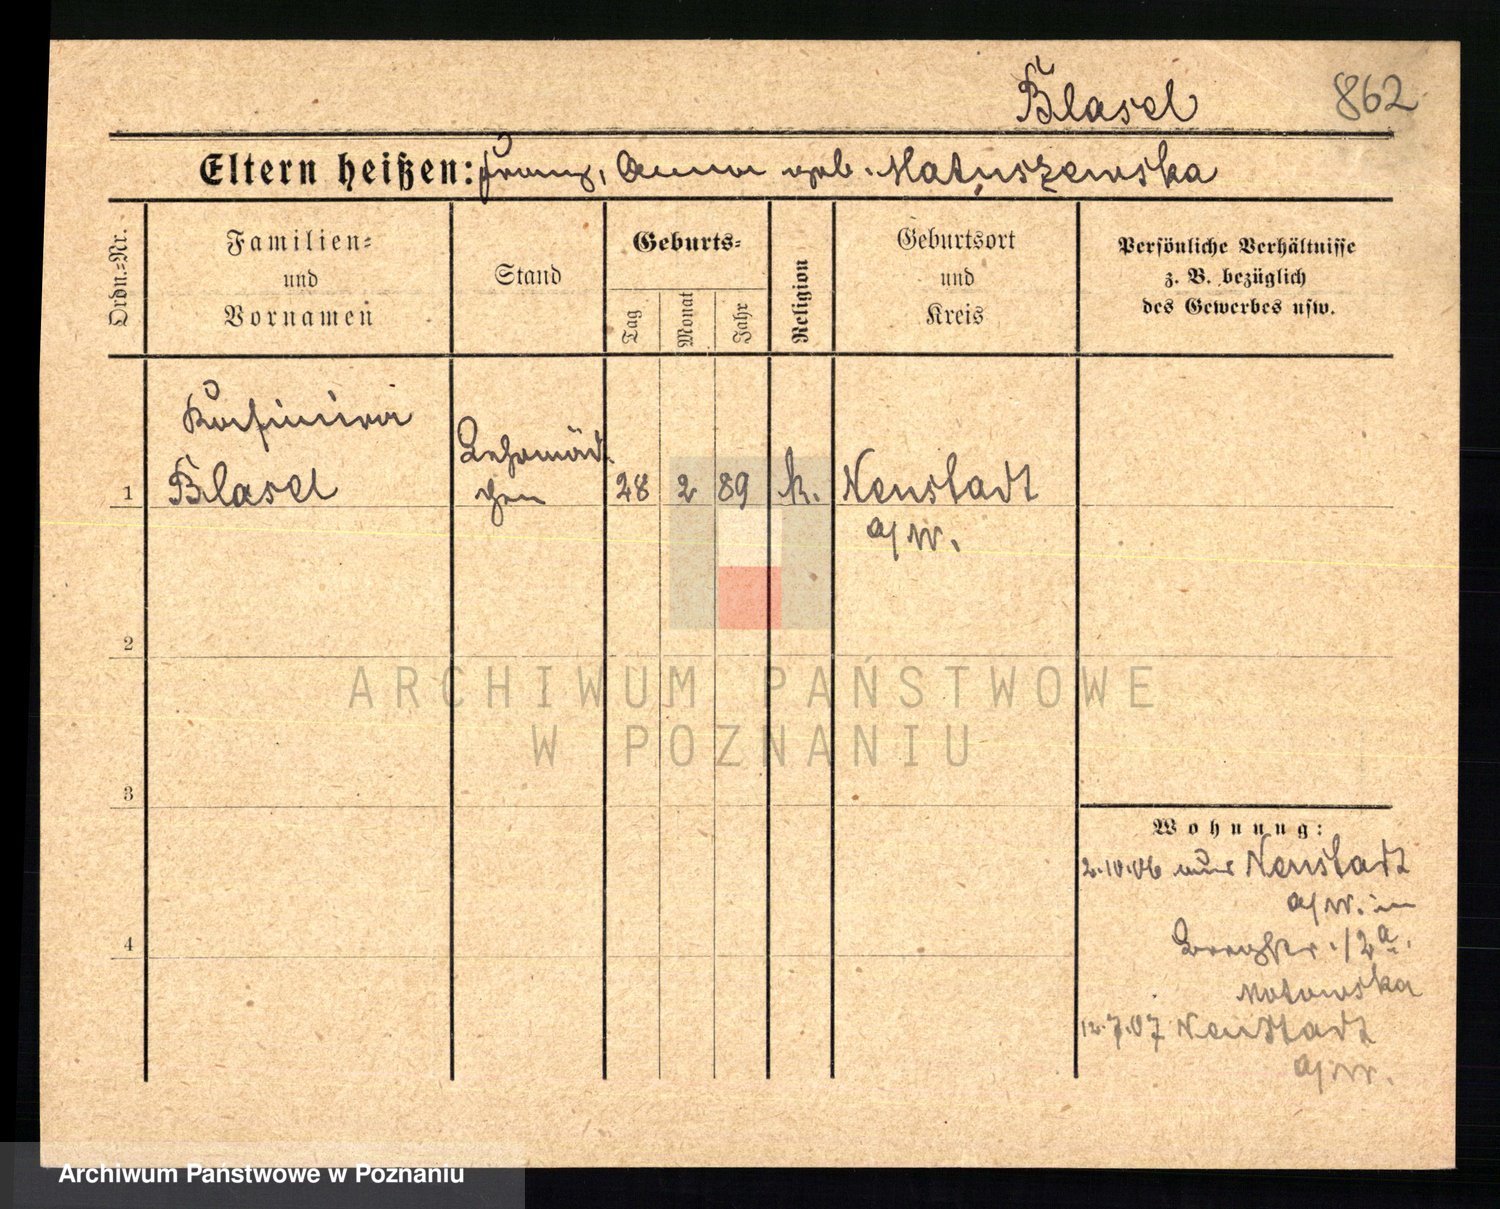 Blasel
862
Eltern heißen: Franz, Anna geb. Matuszewska
Ordn.=Nr.
Familien=
und
Vornamen
Stand
Geburts=
Tag
Monat
Jahr
Religion
Geburtsort
und
Kreis
Persönliche Verhältnisse
z. B. bezüglich
des Gewerbes usw.
Kasimira
Blasel
Lehrmäd-
chen
1
28
2
89
k.
Neustadt
a/W.
2
3
4
Wohnung:
2.10.06 aus Neustadt
a/W. in
12a.
Motowska
12.7.07 Neustadt
a/W.
ARCHIWUM PAŃSTWOWE
W POZNANIU
Archiwum Państwowe w Poznaniu